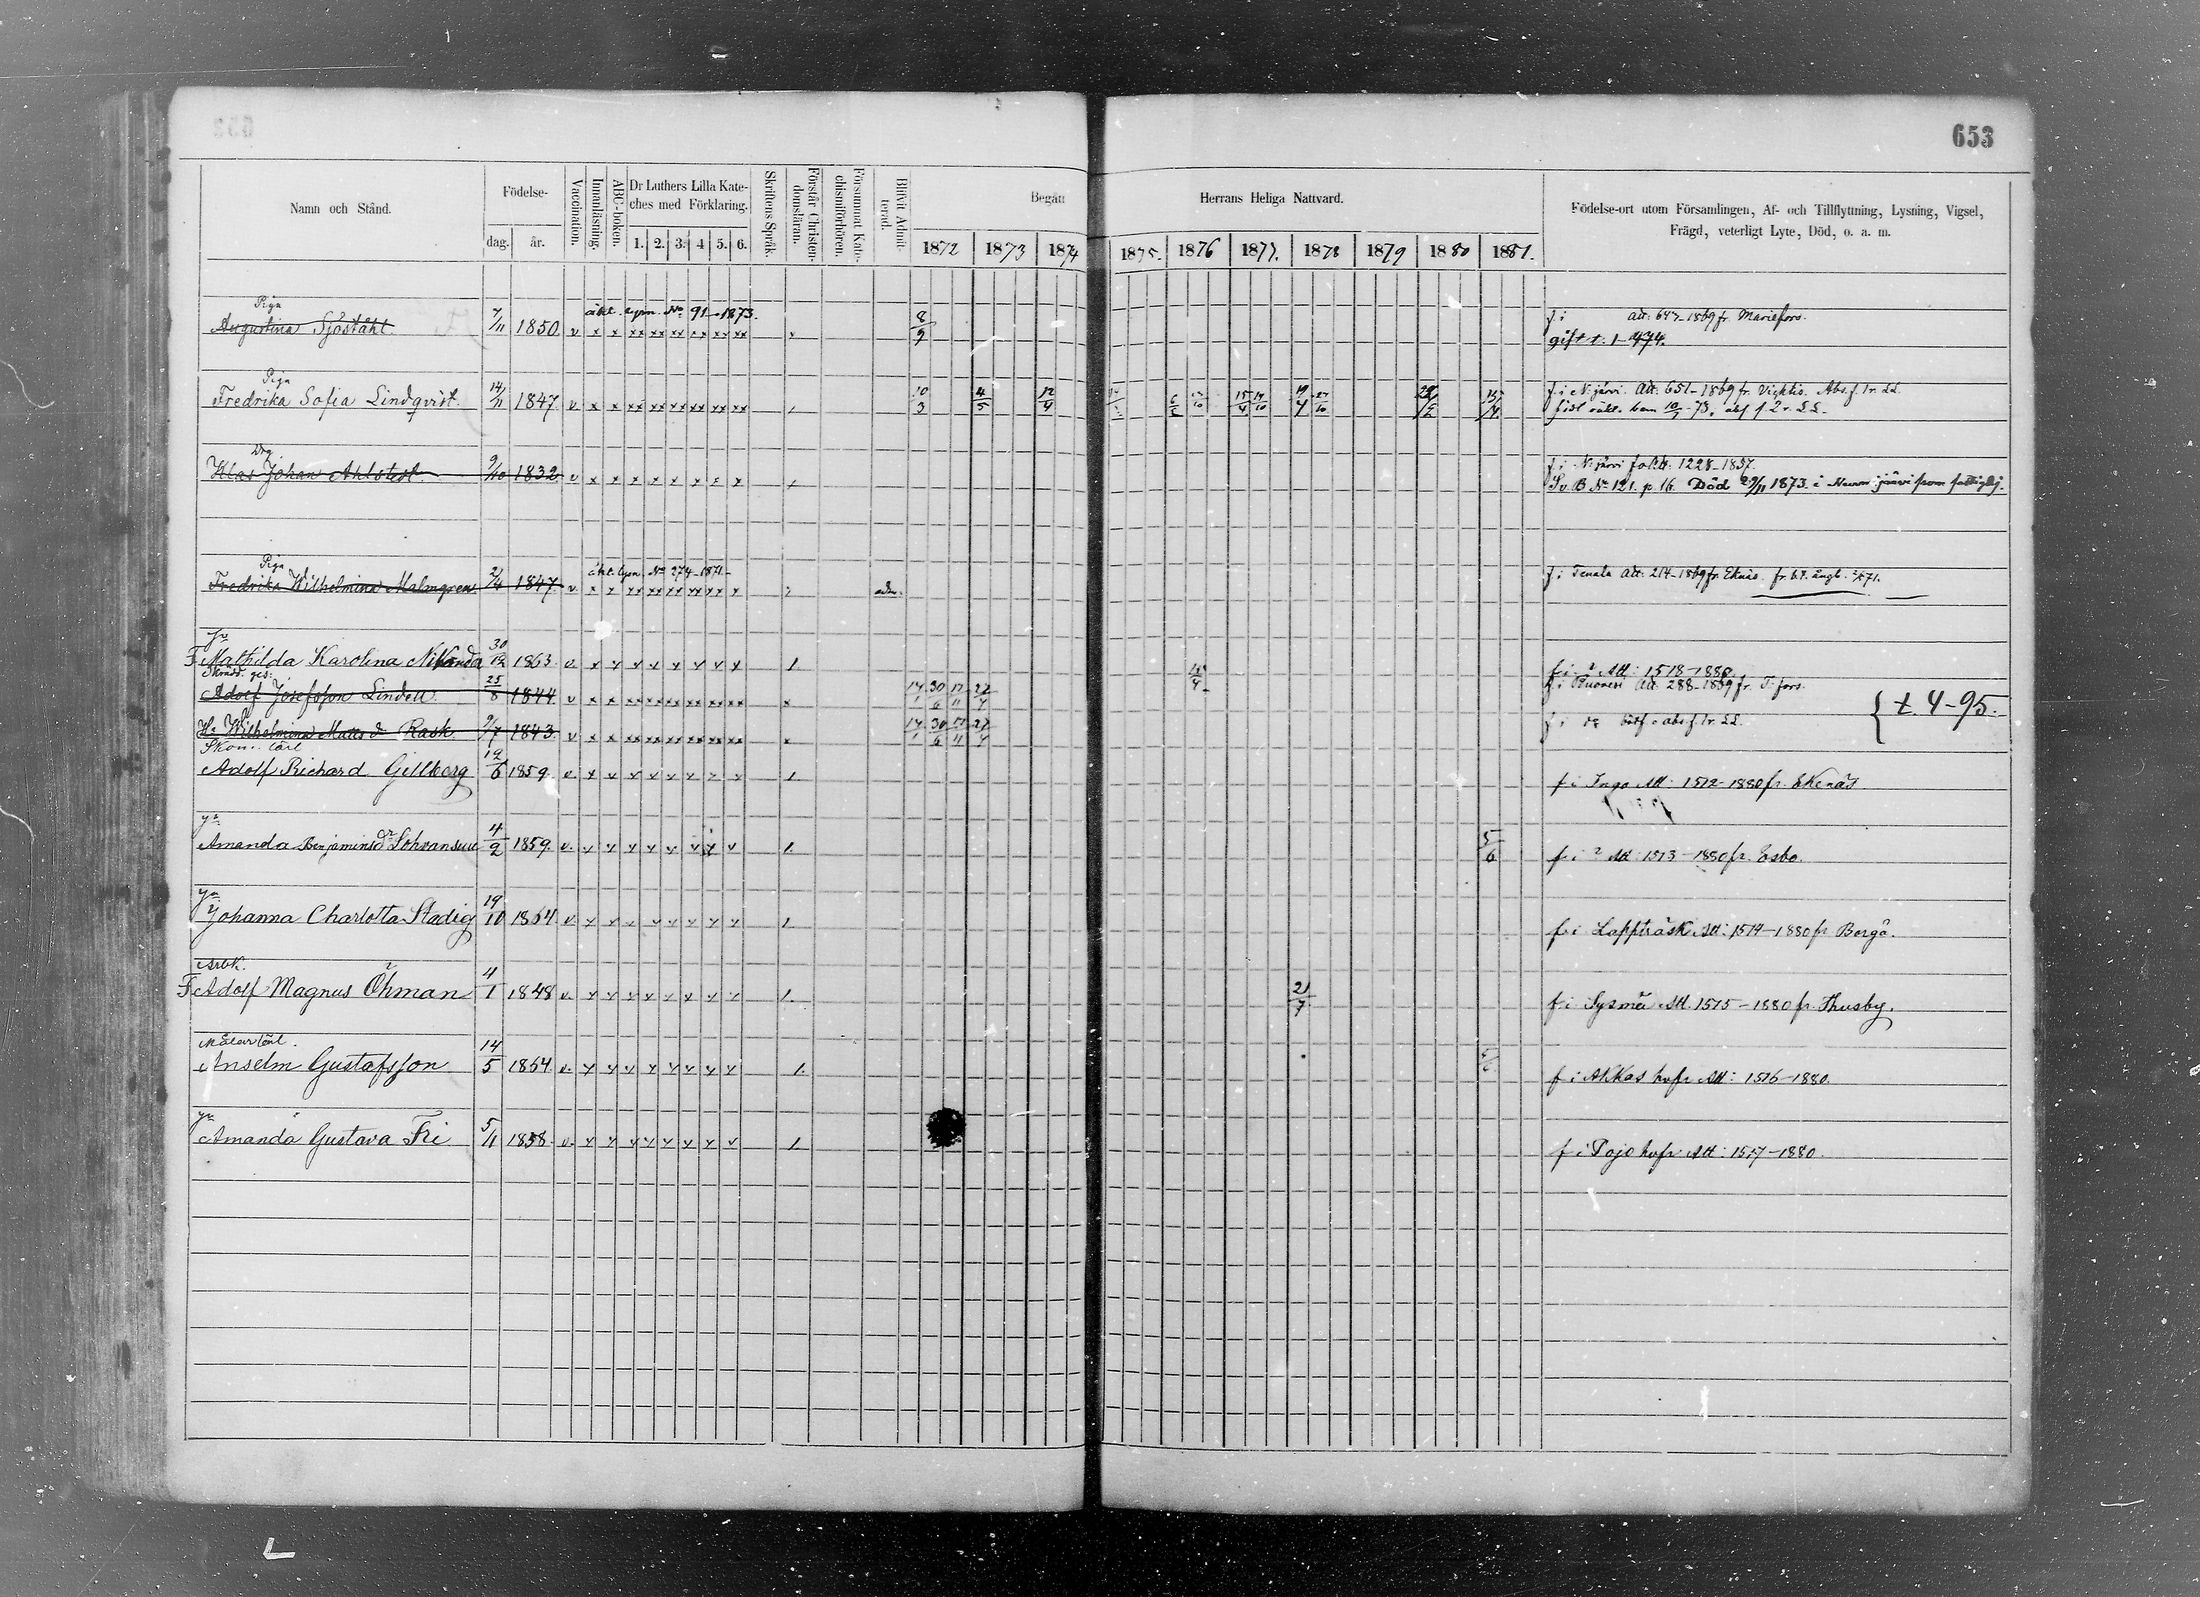 653
Namn och Stånd.
Födelse-
dag.
år.
Vaccination.
Innanläsning.
ABC-boken.
Dr Luthers Lilla Kate-
ches med Förklaring.
1. 2. 3. 4 5. 6.
Skriftens Språk.
Förstår Christen-
domsläran.
Försummat Kate-
chismiförhören.
Blifvit Admit-
terad.
Begått
Herrans Heliga Nattvard.
1872 1873 1874 1875. 1876 1877. 1878 1879 1880 1881.
Födelse-ort utom Församlingen, Af- och Tillflyttning, Lysning, Vigsel,
Frägd, veterligt Lyte, Död, o. a. m.
Piga
Augustina Sjöståhl 7/11 1850 v No 91-1873. 8/9 f i att: 647-1869 fr. Mariefors.
gift t. 1-474.
Piga
Fredrika Sofia Lindqvist 14/11 1847 v 10/3 4/5 12/4 15/4 14/10 f. i N:järvi. Att: 651-1869 fr. Vichtis. Abs. f. 1r. LL
Drg
Klas Johan Ahlstedt 9/10 1832 v f. i N:järvi Att: 1228-1857.
No 121. p. 16. Död 29/11 1873. i
Piga
Fredrika Wilhelmina Malmgren 2/4 1847 v No 274-1871- f. i Tenala Att: 214-1869 fr. Eknäs.
Jn
F Mathilda Karolina Nikander 30/12 1863 v. 4/4 f i Att: 1518-1880.
Skrädd. ges:
Adolf Josefsson Lindell 25/8 1844 v 14/1 30/6 17/11 27/4 f. i Att: 288-1869 fr. T:fors.
H: Wilhelmina Matts dr Rask 9/7 1843 v 14/1 30/6 17/11 27/4 f. i abs. f. 1r. LL. t. 4-95.
Skom. lärl
Adolf Richard Gillberg 12/6 1859 v. f i Ingo Att: 1512-1880 fr. Ekenäs
Jn
Amanda Benjaminsdr 4/2 1859. v. 5/6 f i Att: 1513-1880 fr. Esbo.
Jn
Johanna Charlotta Stadig 19/10 1864 v. f i Lappträsk Att: 1514-1880 fr Borgå.
Arbk.
F Adolf Magnus Öhman 4/1 1848 v. 21/7 f i Sysmä Att. 1515-1880 fr. Thusby.
Målar lärl.
Anselm Gustafsson 14/5 1864 v. f i Akkas hvfr Att: 1516-1880.
Jn
Amanda Gustava Fri 5/11 1858 v. f i Pojo hvfr Att: 1517-1880.